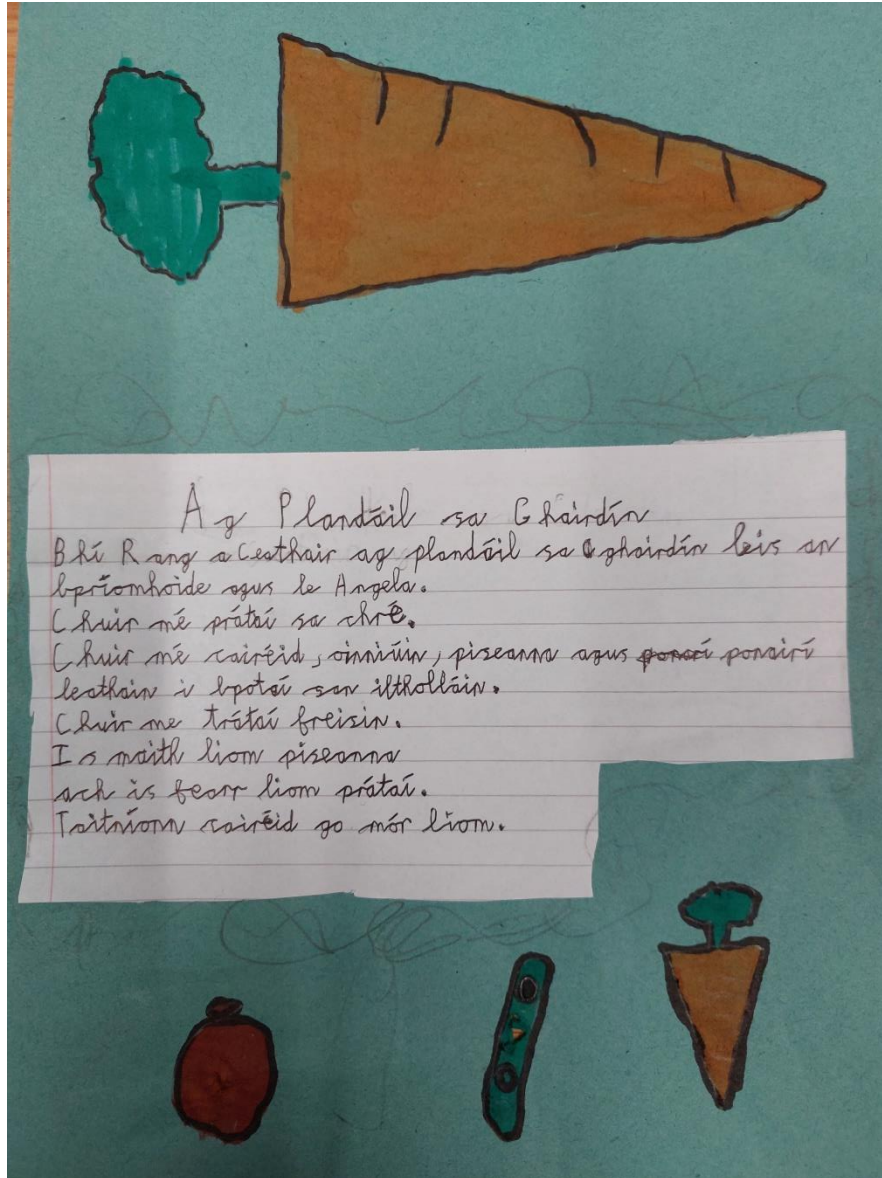 Ag Plandáil sa Ghairdín
Bhí Rang a Ceathair ag plandáil sa ghairdín leis an
bpríomhoide agus le Angela.
Chuir mé prátaí sa chré.
Chuir mé cairéid, oinniúin, piseanna agus ponairí
leathain i bpotaí san iltholláin.
Chuir me trátaí freisin.
Is maith liom piseanna
ach is fearr liom prátaí.
Taitníonn cairéid go mór liom.